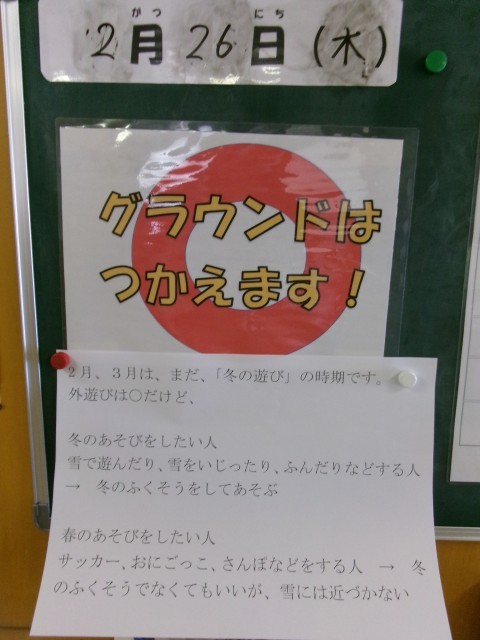 がつ にち
2月26日(木)
グラウンドは
つかえます!
2月、3月は、まだ、「冬の遊び」の時期です。
外遊びは○だけど、
冬のあそびをしたい人
雪で遊んだり、雪をいじったり、ふんだりなどする人
→ 冬のふくそうをしてあそぶ
春のあそびをしたい人
サッカー、おにごっこ、さんぽなどをする人 → 冬
のふくそうでなくてもいいが、雪には近づかない